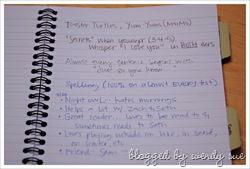 Toaster Turtles, Yum-Yums (M&Ms)
"Secrets" when younger (3-4-5)
Whisper "I love you" in BOTH ears
Almost every sentence begins with
"Just so you know"
Spelling (100% on almost every test)
• Night owl - hates mornings
• Helps a lot w/ Zack & Seth
• Great reader... loves to be read to &
sometimes reads to Seth
• Likes playing outside on lake, in sand,
on scooter, etc
• Friend - Sean
blogged by wendy sue